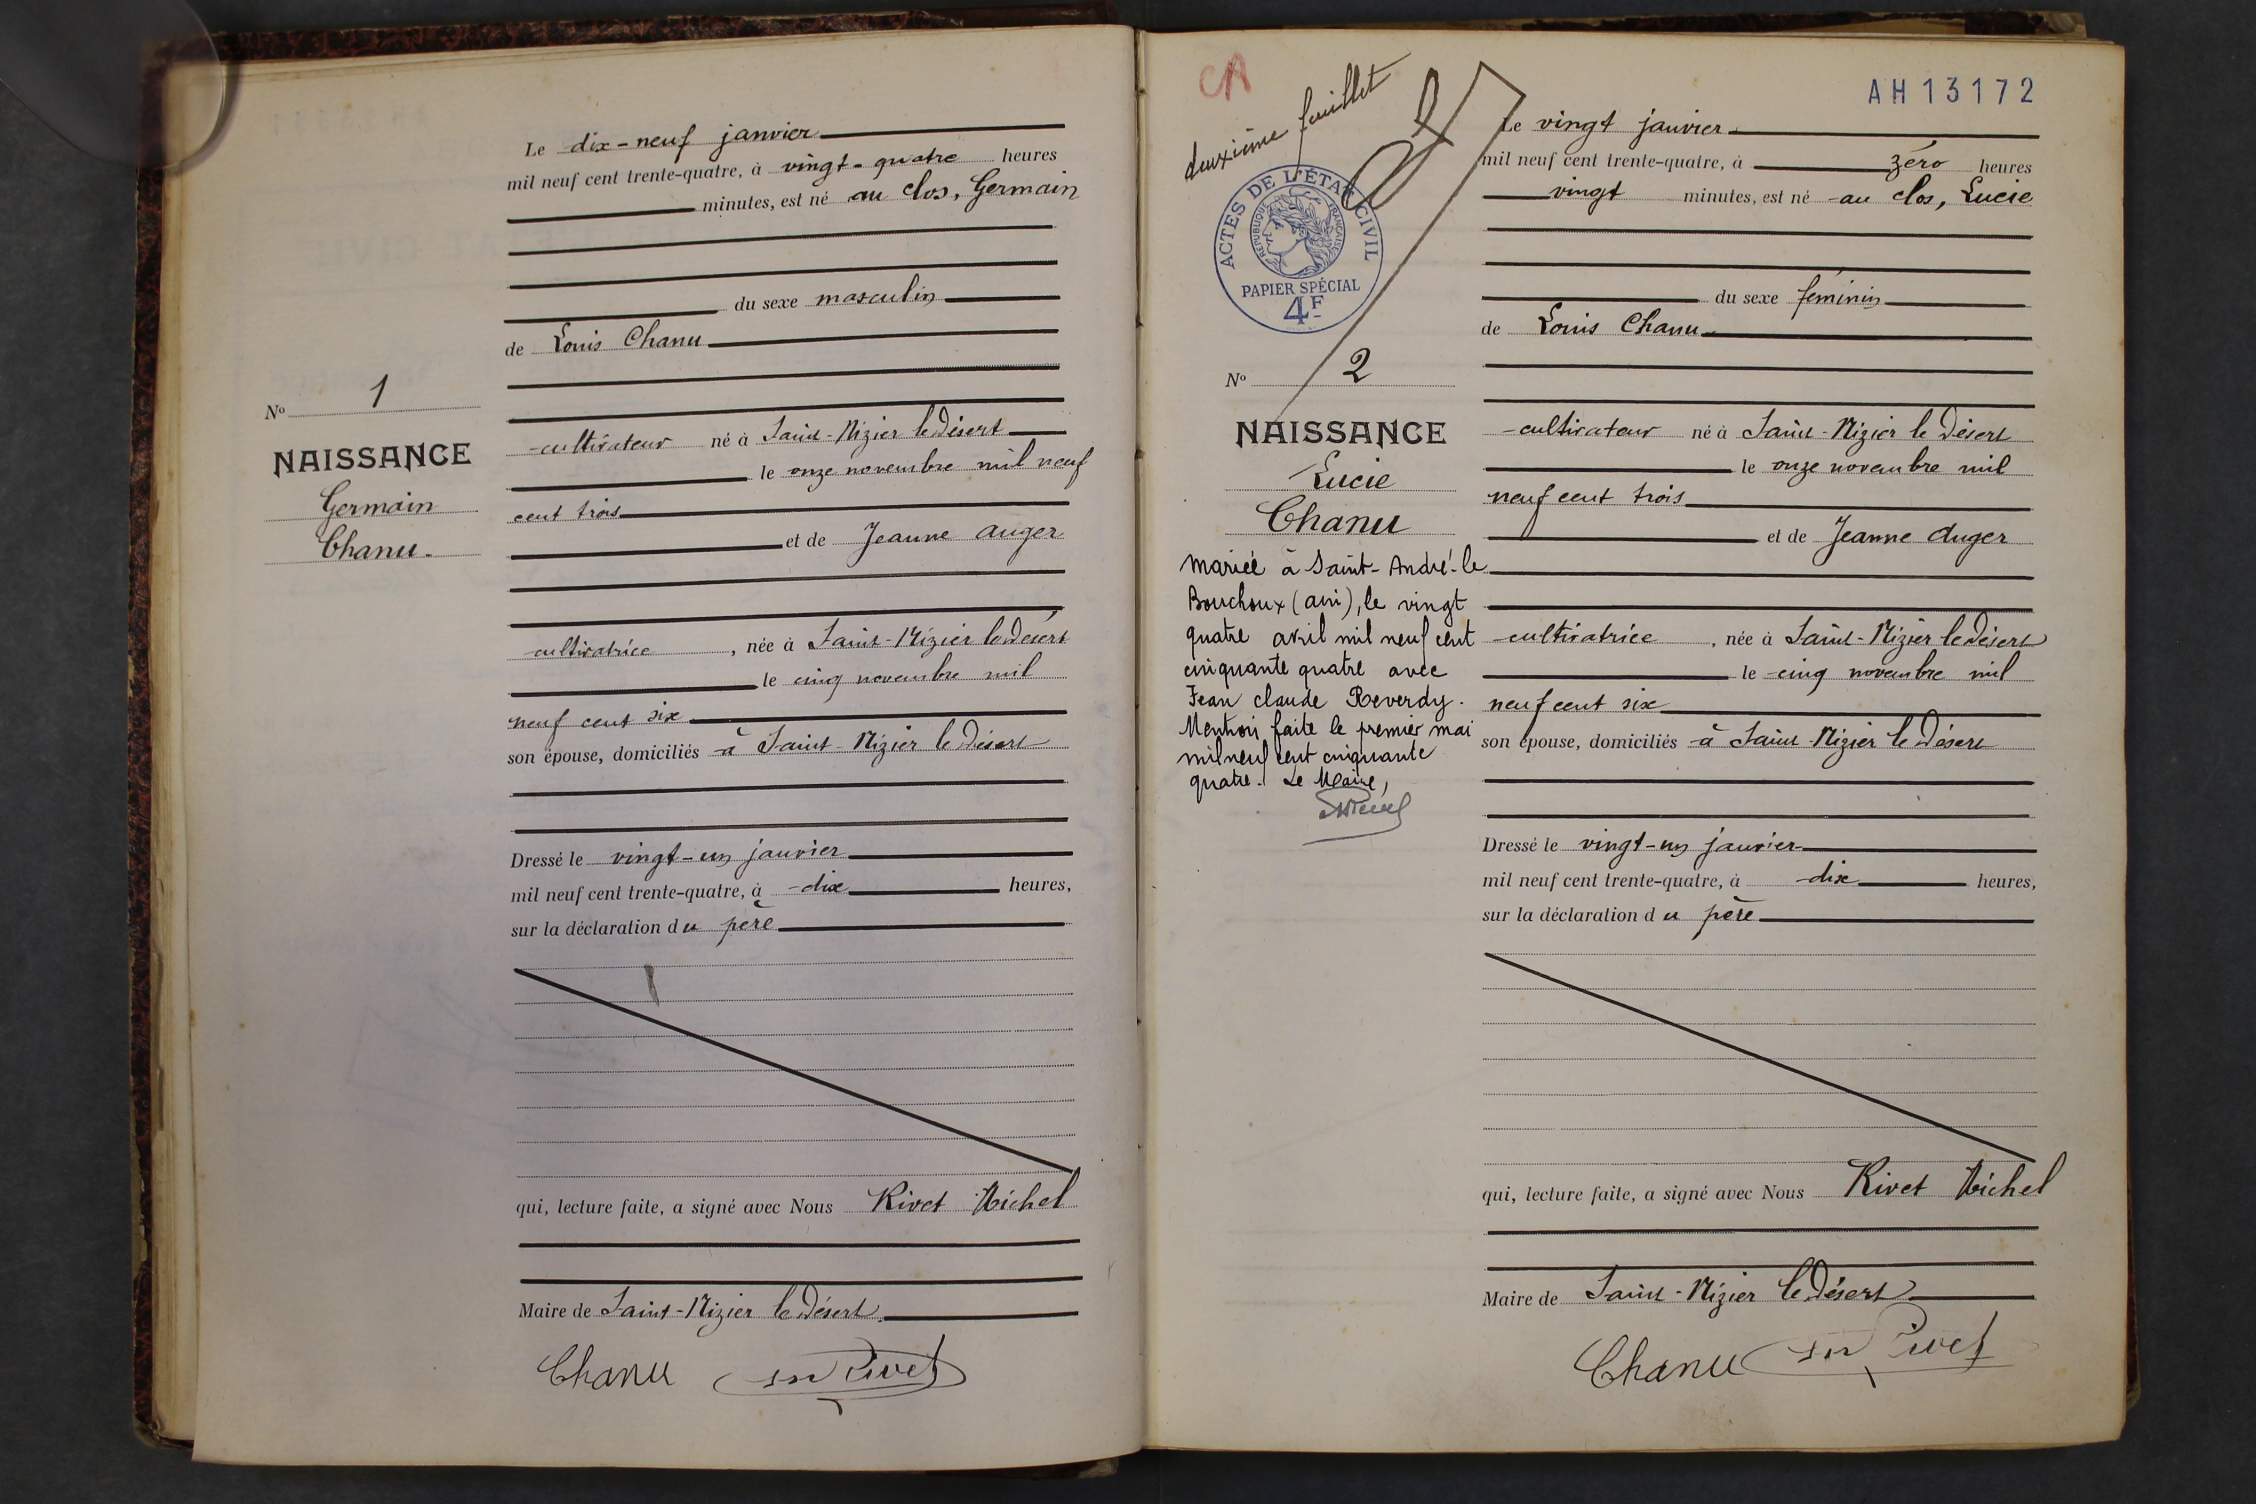 Le dix-neuf janvier
mil neuf cent trente-quatre, à vingt-quatre heures
minutes, est né au clos, Germain
du sexe masculin
de Louis Chanu
cultivateur né à Saint-Nizier le Désert
le onze novembre mil neuf
cent trois
et de Jeanne Auger
cultivatrice, née à Saint-Nizier le Désert
le cinq novembre mil
neuf cent six
son épouse, domiciliés à Saint-Nizier le Désert
Dressé le vingt-un janvier
mil neuf cent trente-quatre, à dix heures,
sur la déclaration du père
qui, lecture faite, a signé avec Nous Rivet Michel
Maire de Saint-Nizier le Désert
Chanu Rivet
No 1
NAISSANCE
Germain
Chanu.
CA
deuxième feuillet
AH13172
ACTES DE L'ÉTAT CIVIL
RÉPUBLIQUE FRANÇAISE
PAPIER SPÉCIAL
4F
No 2
NAISSANCE
Lucie
Chanu
Mariée à Saint-André-le
Bouchoux (ain), le vingt
quatre avril mil neuf cent
cinquante quatre avec
Jean claude Reverdy.
Mention faite le premier mai
mil neuf cent cinquante
quatre. Le Maire,
Le vingt janvier
mil neuf cent trente-quatre, à zéro heures
vingt minutes, est né au clos, Lucie
du sexe féminin
de Louis Chanu
cultivateur né à Saint-Nizier le Désert
le onze novembre mil
neuf cent trois
et de Jeanne Auger
cultivatrice, née à Saint-Nizier le Désert
le cinq novembre mil
neuf cent six
son épouse, domiciliés à Saint-Nizier le Désert
Dressé le vingt-un janvier
mil neuf cent trente-quatre, à dix heures,
sur la déclaration du père
qui, lecture faite, a signé avec Nous Rivet Michel
Maire de Saint-Nizier le Désert
Chanu Rivet